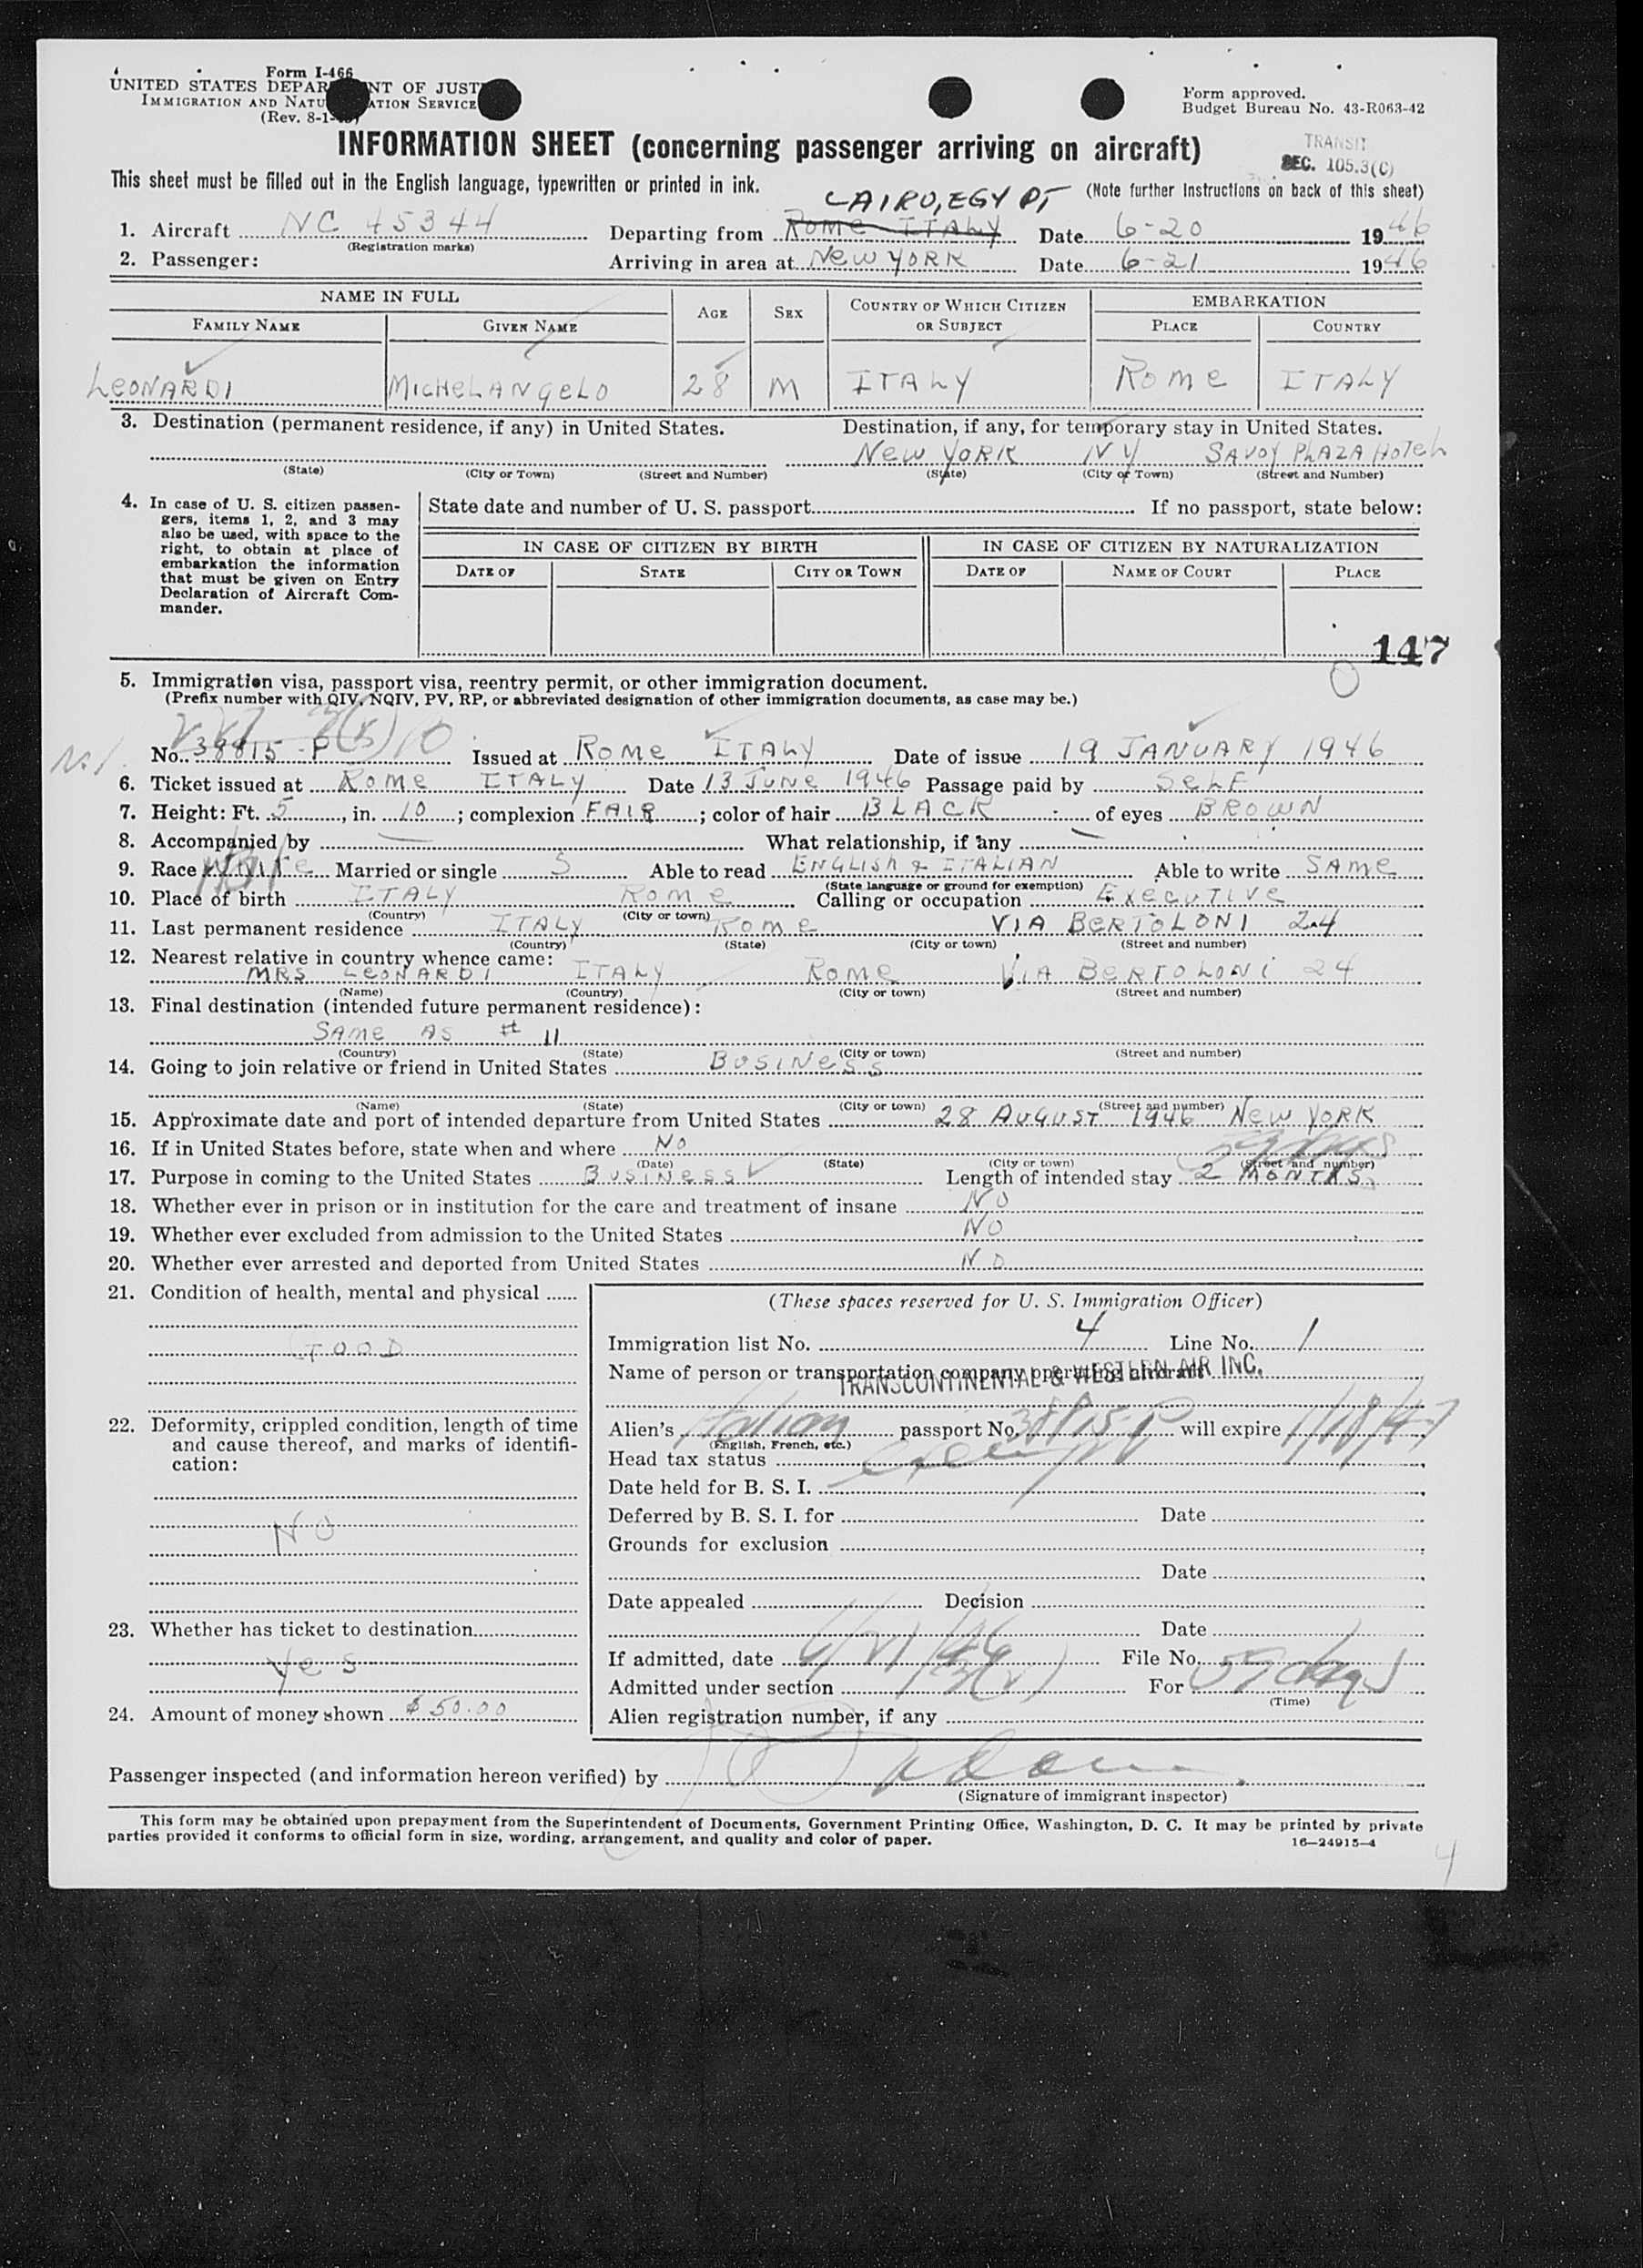 Form I-466
UNITED STATES DEPAR NT OF JUST
IMMIGRATION AND NATU ATION SERVICE
(Rev. 8-1-
Form approved.
Budget Bureau No. 43-R063-42
INFORMATION SHEET (concerning passenger arriving on aircraft)
TRANSIT
SEC. 105.3(C)
This sheet must be filled out in the English language, typewritten or printed in ink.
(Note further Instructions on back of this sheet)
CAIRO, EGYPT
1. Aircraft NC 45344 Departing from Rome ITALY Date 6-20 1946
(Registration marks)
2. Passenger: Arriving in area at New YORK Date 6-21 1946
NAME IN FULL AGE SEX COUNTRY OF WHICH CITIZEN OR SUBJECT EMBARKATION
FAMILY NAME GIVEN NAME PLACE COUNTRY
LEONARDI MICHELANGELO 28 M ITALY ROME ITALY
3. Destination (permanent residence, if any) in United States. Destination, if any, for temporary stay in United States.
New YORK NY SAVOY PLAZA HOTEL
(State) (City or Town) (Street and Number) (State) (City or Town) (Street and Number)
4. In case of U. S. citizen passengers, items 1, 2, and 3 may also be used, with space to the right, to obtain at place of embarkation the information that must be given on Entry Declaration of Aircraft Commander.
State date and number of U. S. passport If no passport, state below:
IN CASE OF CITIZEN BY BIRTH IN CASE OF CITIZEN BY NATURALIZATION
DATE OF STATE CITY OR TOWN DATE OF NAME OF COURT PLACE
147
5. Immigration visa, passport visa, reentry permit, or other immigration document.
(Prefix number with QIV, NQIV, PV, RP, or abbreviated designation of other immigration documents, as case may be.)
No. 38815-P Issued at ROME ITALY Date of issue 19 JANUARY 1946
6. Ticket issued at ROME ITALY Date 13 JUNE 1946 Passage paid by SELF
7. Height: Ft. 5, in. 10; complexion FAIR; color of hair BLACK of eyes BROWN
8. Accompanied by — What relationship, if any —
9. Race White Married or single S Able to read ENGLISH & ITALIAN Able to write SAME
(State language or ground for exemption)
10. Place of birth ITALY ROME Calling or occupation EXECUTIVE
(Country) (City or town)
11. Last permanent residence ITALY ROME VIA BERTOLONI 24
(Country) (State) (City or town) (Street and number)
12. Nearest relative in country whence came:
MRS LEONARDI ITALY ROME VIA BERTOLONI 24
(Name) (Country) (City or town) (Street and number)
13. Final destination (intended future permanent residence):
SAME AS # 11
(Country) (State) (City or town) (Street and number)
14. Going to join relative or friend in United States BUSINESS
(Name) (State) (City or town) (Street and number)
15. Approximate date and port of intended departure from United States 28 AUGUST 1946 NEW YORK
16. If in United States before, state when and where NO
(Date) (State) (City or town) (Street and number)
17. Purpose in coming to the United States BUSINESS Length of intended stay 2 MONTHS
18. Whether ever in prison or in institution for the care and treatment of insane NO
19. Whether ever excluded from admission to the United States NO
20. Whether ever arrested and deported from United States NO
21. Condition of health, mental and physical
GOOD
22. Deformity, crippled condition, length of time and cause thereof, and marks of identification:
NO
23. Whether has ticket to destination
Yes
24. Amount of money shown $50.00
(These spaces reserved for U. S. Immigration Officer)
Immigration list No. 4 Line No. 1
Name of person or transportation company operating aircraft
TRANSCONTINENTAL & WESTERN AIR INC.
Alien's Italian passport No. 38815-P will expire 1/18/47
(English, French, etc.)
Head tax status exempt
Date held for B. S. I.
Deferred by B. S. I. for Date
Grounds for exclusion
Date
Date appealed Decision
Date
If admitted, date 6/21/46 File No.
Admitted under section 3(2) For 59 days
(Time)
Alien registration number, if any
Passenger inspected (and information hereon verified) by
(Signature of immigrant inspector)
This form may be obtained upon prepayment from the Superintendent of Documents, Government Printing Office, Washington, D. C. It may be printed by private
parties provided it conforms to official form in size, wording, arrangement, and quality and color of paper. 16—24915-4
4